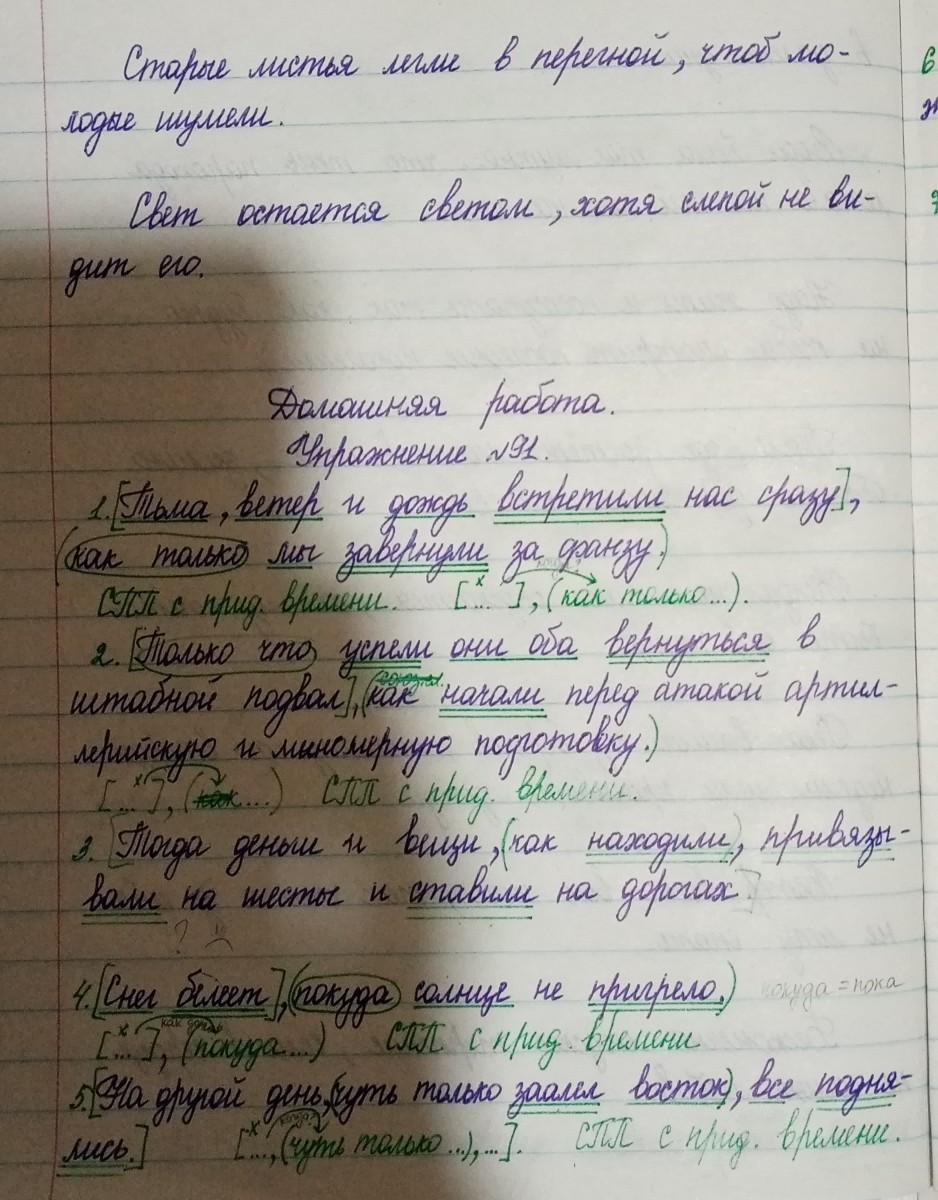 Старые листья легли в перегной, чтоб мо-
лодые шумели.
Свет остается светом, хотя слепой не ви-
дит его.
Домашняя работа.
Упражнение №91.
1. [Тьма, ветер и дождь встретили нас сразу],
(как только мы завернули за фанзу.)
когда?
СПП с прид. времени. [...x], (как только...).
2. [Только что успели они оба вернуться в
штабной подвал], (как начали перед атакой артил-
лерийскую и минометную подготовку.)
[...x], (как...) СПП с прид. времени.
3. [Тогда деньги и вещи, (как находили), привязы-
вали на шесты и ставили на дорогах.]
?
4. [Снег белеет], (покуда солнце не пригрело.) покуда = пока
как долго
[...x], (покуда...) СПП с прид. времени
5. [На другой день, (чуть только заалел восток), все подня-
лись.] [x..., (чуть только...), ...]. СПП с прид. времени.
когда?
6
7